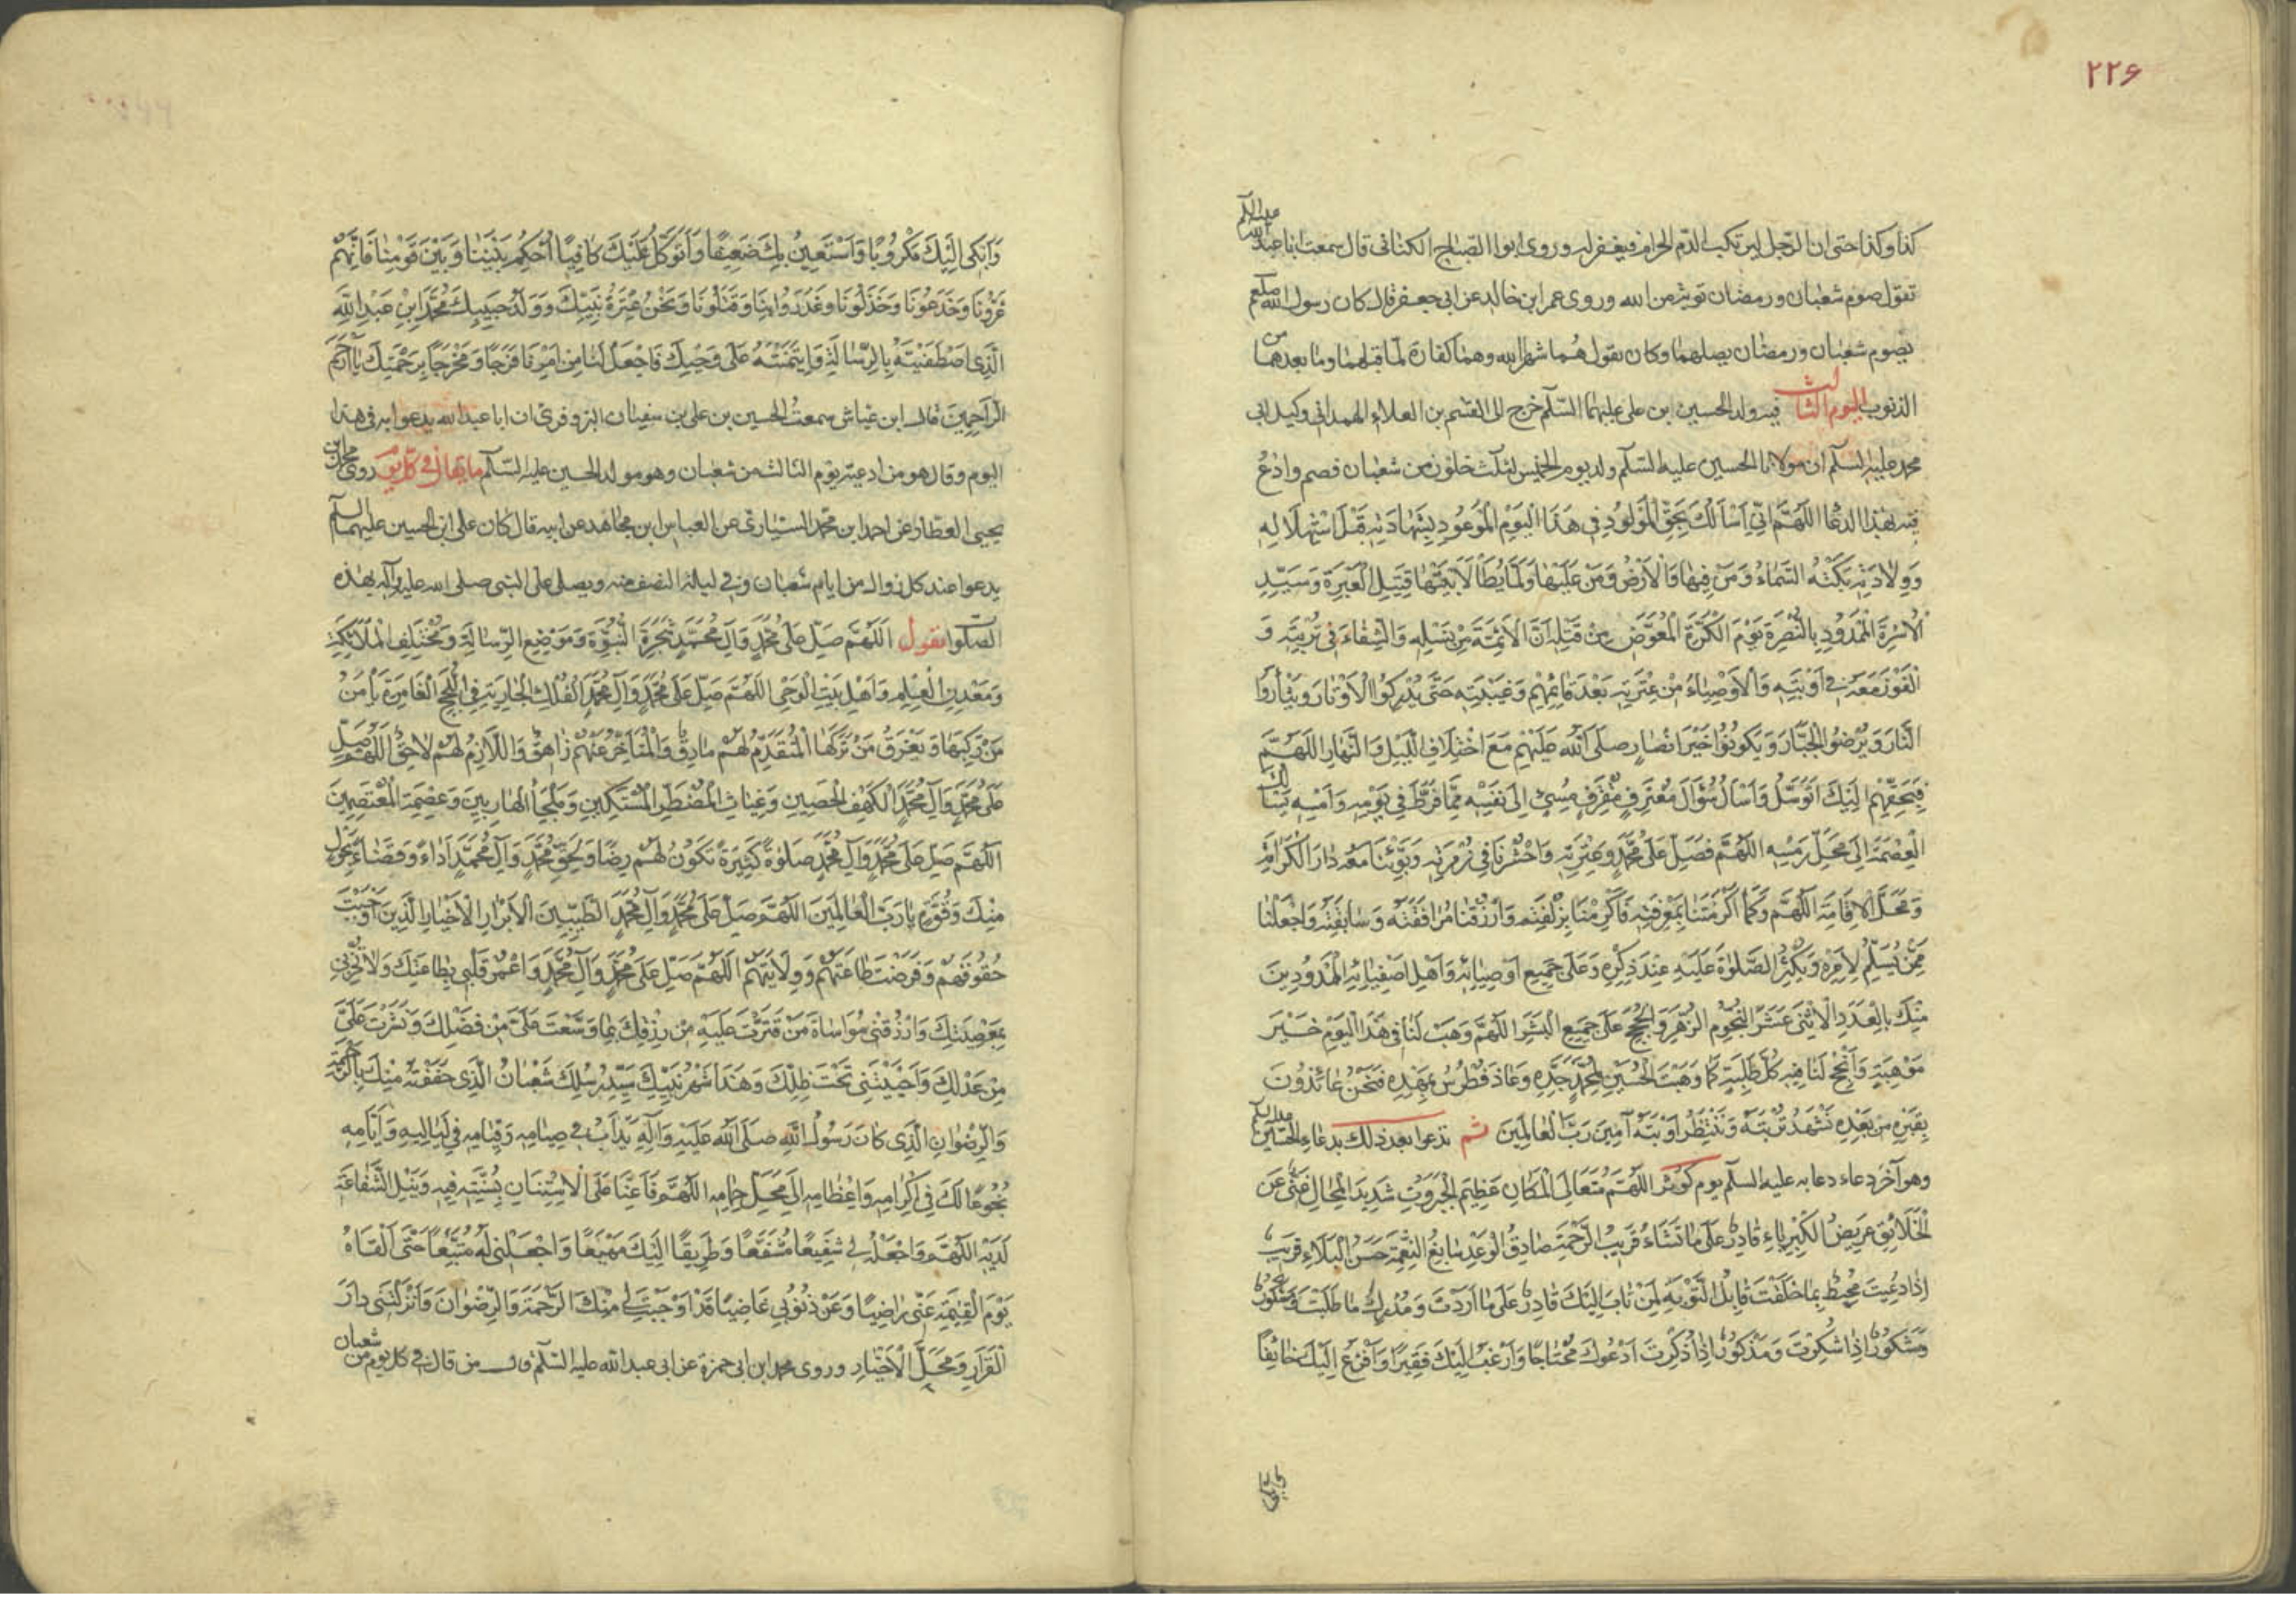 ۲۲۶
كذا وكذا حتى ان الرجل ليرتكب الدم الحرام فيغفر له وروى ابوا الصباح الكنانى قال سمعت ابا عبد الله عليه السلم
تقول صوم شعبان ورمضان توبة من الله وروى عمر ابن خالد عن ابى جعفر قال كان رسول الله صلعم
يصوم شعبان ورمضان يصلهما وكان يقول هُما شهرا الله وهما كفارة لما قبلهما وما بعدهما من
الذنوب اليوم الثالث فيه ولد الحسين ابن على عليهما السّلم خرج الى القسم بن العلاء الهمدانى وكيل ابى
محمد عليه السلم ان مولانا الحسين عليه السّلم ولد يوم الخميس لثلث خلون من شعبان فصم وادعُ
فيه بهذا الدعا اَللّهُمَّ اِنّى اَسْأَلُكَ بِحَقِّ الْمَوْلُودِ فى هَذَا الْيَوْمِ الْمَوْعُودِ بِشَهادَتِهِ قَبْلَ اسْتِهْلَالِهِ
وَوِلَادَتِهِ بَكَتْهُ السَّمَاءُ وَمَنْ فِيهَا وَالْاَرْضُ وَمَنْ عَلَيْهَا وَلَمَّا يُطَأْ لَابَتَيْهَا قَتِيلِ الْعَبْرَةِ وَسَيِّدِ
الْاُسْرَةِ الْمَمْدُودِ بِالنُّصْرَةِ يَوْمَ الْكَرَّةِ الْمُعَوَّضِ مِنْ قَتْلِهِ اَنَّ الْاَئِمَّةَ مِنْ نَسْلِهِ وَالشِّفَاءَ فى تُرْبَتِهِ وَ
الْفَوْزَ مَعَهُ فى اَوْبَتِهِ وَالْاَوْصِيَاءُ مِنْ عِتْرَتِهِ بَعْدَ قَائِمِهِمْ وَغَيْبَتِهِ حَتَّى يُدْرِكُوا الْاَوْتَارَ وَيَثْاَرُوا
الثَّارَ وَيُرْضُوا الْجَبَّارَ وَيَكُونُوا خَيْرَ اَنْصَارٍ صَلَّى اللّهُ عَلَيْهِمْ مَعَ اخْتِلَافِ اللَّيْلِ وَالنَّهَارِ اللّهُمَّ
فَبِحَقِّهِمْ اِلَيْكَ اَتَوَسَّلُ وَاَسْاَلُ سُؤَالَ مُعْتَرِفٍ مُقْتَرِفٍ مُسِىءٍ اِلَى نَفْسِهِ مِمَّا فَرَّطَ فى يَوْمِهِ وَاَمْسِهِ يَسْاَلُكَ
الْعِصْمَةَ اِلَى مَحَلِّ رَمْسِهِ اللّهُمَّ فَصَلِّ عَلَى مُحَمَّدٍ وَعِتْرَتِهِ وَاحْشُرْنَا فى زُمْرَتِهِ وَبَوِّئْنَا مَعَهُ دَارَ الْكَرَامَةِ
وَمَحَلَّ الْاِقَامَةِ اللّهُمَّ وَكَمَا اَكْرَمْتَنَا بِمَعْرِفَتِهِ فَاَكْرِمْنَا بِزُلْفَتِهِ وَارْزُقْنَا مُرَافَقَتَهُ وَسَابِقَتَهُ وَاجْعَلْنَا
مِمَّنْ يُسَلِّمُ لِاَمْرِهِ وَيُكْثِرُ الصَّلَوةَ عَلَيْهِ عِنْدَ ذِكْرِهِ وَعَلَى جَمِيعِ اَوْصِيَائِهِ وَاَهْلِ اَصْفِيَائِهِ الْمَمْدُودِينَ
مِنْكَ بِالْعَدَدِ الْاِثْنَى عَشَرَ النُّجُومِ الزُّهَرِ وَالْحُجَجِ عَلَى جَمِيعِ الْبَشَرِ اللّهُمَّ وَهَبْ لَنَا فى هَذَا الْيَوْمِ خَيْرَ
مَوْهِبَةٍ وَاَنْجِحْ لَنَا فِيهِ كُلَّ طَلِبَةٍ كَمَا وَهَبْتَ الْحُسَيْنَ لِمُحَمَّدٍ جَدِّهِ وَعَاذَ فُطْرُسُ بِمَهْدِهِ فَنَحْنُ عَائِذُونَ
بِقَبْرِهِ مِنْ بَعْدِهِ نَشْهَدُ تُرْبَتَهُ وَنَنْتَظِرُ اَوْبَتَهُ آمِينَ رَبَّ الْعَالَمِينَ ثم تدعوا بعد ذلك بدعاء الحسين عليه السلم
وهو آخر دعاء دعا به عليه السلم يوم كوثر اللّهُمَّ مُتَعَالِىَ الْمَكَانِ عَظِيمَ الْجَبَرُوتِ شَدِيدَ الْمِحَالِ غَنِىٌّ عَنِ
الْخَلَائِقِ عَرِيضُ الْكِبْرِيَاءِ قَادِرٌ عَلَى مَا تَشَاءُ قَرِيبُ الرَّحْمَةِ صَادِقُ الْوَعْدِ سَابِغُ النِّعْمَةِ حَسَنُ الْبَلَاءِ قَرِيبٌ
اِذَا دُعِيتَ مُحِيطٌ بِمَا خَلَقْتَ قَابِلُ التَّوْبَةِ لِمَنْ تَابَ اِلَيْكَ قَادِرٌ عَلَى مَا اَرَدْتَ وَمُدْرِكٌ مَا طَلَبْتَ
وَشَكُورٌ اِذَا شُكِرْتَ وَمَذْكُورٌ اِذَا ذُكِرْتَ اَدْعُوكَ مُحْتَاجًا وَاَرْغَبُ اِلَيْكَ فَقِيرًا وَاَفْزَعُ اِلَيْكَ خَائِفًا
وَاَبْكِى اِلَيْكَ مَكْرُوبًا وَاَسْتَعِينُ بِكَ ضَعِيفًا وَاَتَوَكَّلُ عَلَيْكَ كَافِيًا اُحْكُمْ بَيْنَنَا وَبَيْنَ قَوْمِنَا فَاِنَّهُمْ
غَرُّونَا وَخَدَعُونَا وَخَذَلُونَا وَغَدَرُوا بِنَا وَقَتَلُونَا وَنَحْنُ عِتْرَةُ نَبِيِّكَ وَوَلَدُ حَبِيبِكَ مُحَمَّدِ ابْنِ عَبْدِ اللّهِ
الَّذِى اصْطَفَيْتَهُ بِالرِّسَالَةِ وَائْتَمَنْتَهُ عَلَى وَحْيِكَ فَاجْعَلْ لَنَا مِنْ اَمْرِنَا فَرَجًا وَمَخْرَجًا بِرَحْمَتِكَ يَا اَرْحَمَ
الرَّاحِمِينَ قال ابن عياش سمعتُ الحسين بن على بن سفيان البزوفرى ان ابا عبد الله يدعوا به فى هذا
اليوم وقال هو من ادعية يوم الثالث من شعبان وهو مولد الحسين عليه السّلم ما يقال فى كل يوم روى محمد بن
يحيى العطار عن احمد ابن محمد السيّارى عن العباس ابن مجاهد عن ابيه قال كان على ابن الحسين عليهما السلم
يدعوا عند كل زوال من ايام شعبان وفى ليلة النصف منه ويصلى على النبى صلى الله عليه وآله بهذه
الصّلوا تقول اَللّهُمَّ صَلِّ عَلَى مُحَمَّدٍ وَآلِ مُحَمَّدٍ شَجَرَةِ النُّبُوَّةِ وَمَوْضِعِ الرِّسَالَةِ وَمُخْتَلَفِ الْمَلَائِكَةِ
وَمَعْدِنِ الْعِلْمِ وَاَهْلِ بَيْتِ الْوَحْىِ اللّهُمَّ صَلِّ عَلَى مُحَمَّدٍ وَآلِ مُحَمَّدٍ الْفُلْكِ الْجَارِيَةِ فِى اللُّجَجِ الْغَامِرَةِ يَاْمَنُ
مَنْ رَكِبَهَا وَيَغْرَقُ مَنْ تَرَكَهَا الْمُتَقَدِّمُ لَهُمْ مَارِقٌ وَالْمُتَاَخِّرُ عَنْهُمْ زَاهِقٌ وَاللَّازِمُ لَهُمْ لَاحِقٌ اللّهُمَّ صَلِّ
عَلَى مُحَمَّدٍ وَآلِ مُحَمَّدٍ الْكَهْفِ الْحَصِينِ وَغِيَاثِ الْمُضْطَرِّ الْمُسْتَكِينِ وَمَلْجَأِ الْهَارِبِينَ وَعِصْمَةِ الْمُعْتَصِمِينَ
اللّهُمَّ صَلِّ عَلَى مُحَمَّدٍ وَآلِ مُحَمَّدٍ صَلَوةً كَثِيرَةً تَكُونُ لَهُمْ رِضًا وَلِحَقِّ مُحَمَّدٍ وَآلِ مُحَمَّدٍ اَدَاءً وَقَضَاءً بِحَوْلٍ
مِنْكَ وَقُوَّةٍ يَا رَبَّ الْعَالَمِينَ اللّهُمَّ صَلِّ عَلَى مُحَمَّدٍ وَآلِ مُحَمَّدٍ الطَّيِّبِينَ الْاَبْرَارِ الْاَخْيَارِ الَّذِينَ اَوْجَبْتَ
حُقُوقَهُمْ وَفَرَضْتَ طَاعَتَهُمْ وَوِلَايَتَهُمْ اللّهُمَّ صَلِّ عَلَى مُحَمَّدٍ وَآلِ مُحَمَّدٍ وَاعْمُرْ قَلْبِى بِطَاعَتِكَ وَلَا تُخْزِنِى
بِمَعْصِيَتِكَ وَارْزُقْنِى مُوَاسَاةَ مَنْ قَتَّرْتَ عَلَيْهِ مِنْ رِزْقِكَ بِمَا وَسَّعْتَ عَلَىَّ مِنْ فَضْلِكَ وَنَشَرْتَ عَلَىَّ
مِنْ عَدْلِكَ وَاَحْيَيْتَنِى تَحْتَ ظِلِّكَ وَهَذَا شَهْرُ نَبِيِّكَ سَيِّدِ رُسُلِكَ شَعْبَانُ الَّذِى حَفَفْتَهُ مِنْكَ بِالرَّحْمَةِ
وَالرِّضْوَانِ الَّذِى كَانَ رَسُولُ اللّهِ صَلَّى اللّهُ عَلَيْهِ وَآلِهِ يَدْاَبُ فى صِيَامِهِ وَقِيَامِهِ فى لَيَالِيهِ وَاَيَّامِهِ
بُخُوعًا لَكَ فى اِكْرَامِهِ وَاِعْظَامِهِ اِلَى مَحَلِّ حِمَامِهِ اللّهُمَّ فَاَعِنَّا عَلَى الْاِسْتِنَانِ بِسُنَّتِهِ فِيهِ وَنَيْلِ الشَّفَاعَةِ
لَدَيْهِ اللّهُمَّ وَاجْعَلْهُ لِى شَفِيعًا مُشَفَّعًا وَطَرِيقًا اِلَيْكَ مَهْيَعًا وَاجْعَلْنِى لَهُ مُتَّبِعًا حَتَّى اَلْقَاهُ
يَوْمَ الْقِيمَةِ عَنِّى رَاضِيًا وَعَنْ ذُنُوبِى غَاضِيًا قَدْ اَوْجَبْتَ لِى مِنْكَ الرَّحْمَةَ وَالرِّضْوَانَ وَاَنْزَلْتَنِى دَارَ
الْقَرَارِ وَمَحَلَّ الْاَخْيَارِ وروى محمد ابن ابى حمزة عن ابى عبد الله عليه السّلم قال من قال فى كل يوم من شعبان